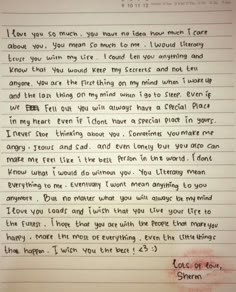 I love you so much. you have no idea how much I care
about you. You mean so much to me. I would literally
trust you with my life. I could tell you anything and
know that you would keep my secrets and not tell
anyone. You are the first thing on my mind when I wake up
and the last thing on my mind when I go to sleep. Even if
we fell out you will always have a special place
in my heart even if I dont have a special place in yours.
I never stop thinking about you. Sometimes you make me
angry, Jelous and sad. and even lonely but you also can
make me feel like I the best person in the world. I dont
know what I would do without you. You literally mean
everything to me. Eventually I wont mean anything to you
anymore. But no matter what you will always be my mind
I love you loads and I wish that you live your life to
the fullest. I hope that you are with the people that make you
happy. make the most of everything, even the little things
that happen. I wish you the best! <3 :)
Lots of love,